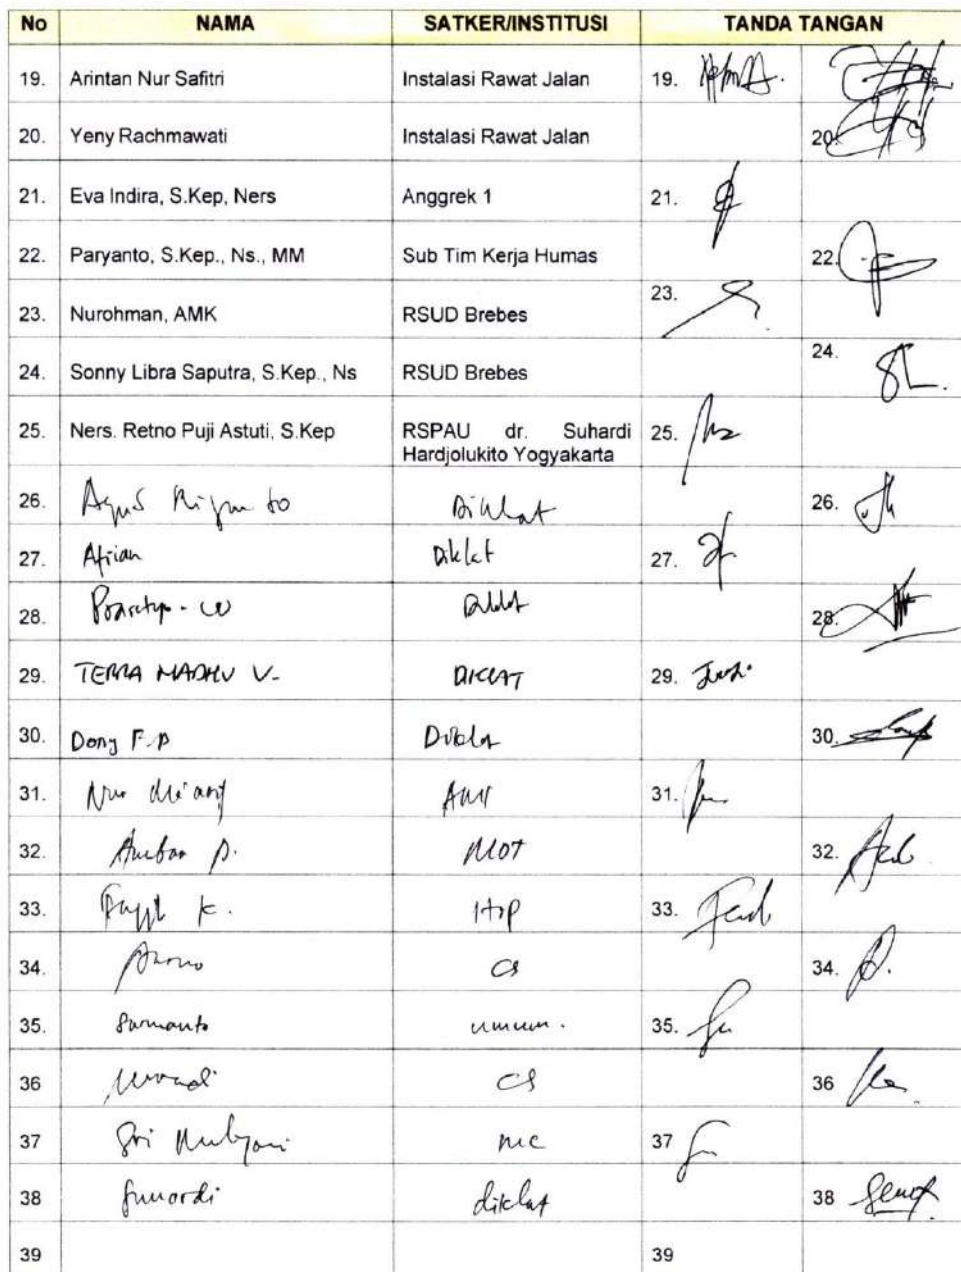 No NAMA SATKER/INSTITUSI TANDA TANGAN
19. Arintan Nur Safitri Instalasi Rawat Jalan 19.
20. Yeny Rachmawati Instalasi Rawat Jalan 20.
21. Eva Indira, S.Kep, Ners Anggrek 1 21.
22. Paryanto, S.Kep., Ns., MM Sub Tim Kerja Humas 22.
23. Nurohman, AMK RSUD Brebes 23.
24. Sonny Libra Saputra, S.Kep., Ns RSUD Brebes 24.
25. Ners. Retno Puji Astuti, S.Kep RSPAU dr. Suhardi 25.
Hardjolukito Yogyakarta
26. Agus Diklat 26.
27. Afrian Diklat 27.
28. Diklat 28.
29. TERRA MADHU V. DIKLAT 29.
30. Dony F.P Diklat 30.
31. Nur 31.
32. Ambar P. 32.
33. K. 33.
34. CS 34.
35. Sarmanto umum. 35.
36 CS 36
37 Sri Mulyani 37
38 Sunardi diklat 38
39 39